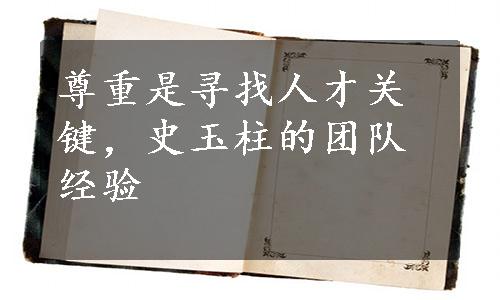 尊重是寻找人才关
键，史玉柱的团队
经验